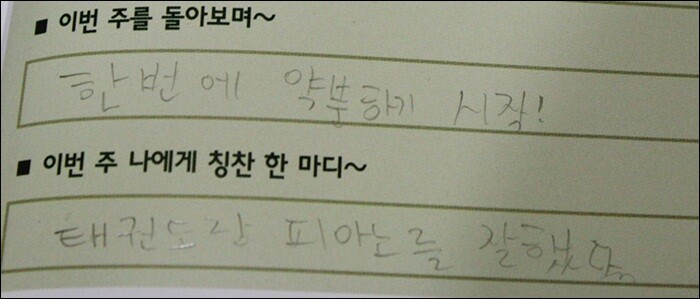 ■ 이번 주를 돌아보며~
한번에 약분하기 시작!
■ 이번 주 나에게 칭찬 한 마디~
태권도랑 피아노를 잘했다.